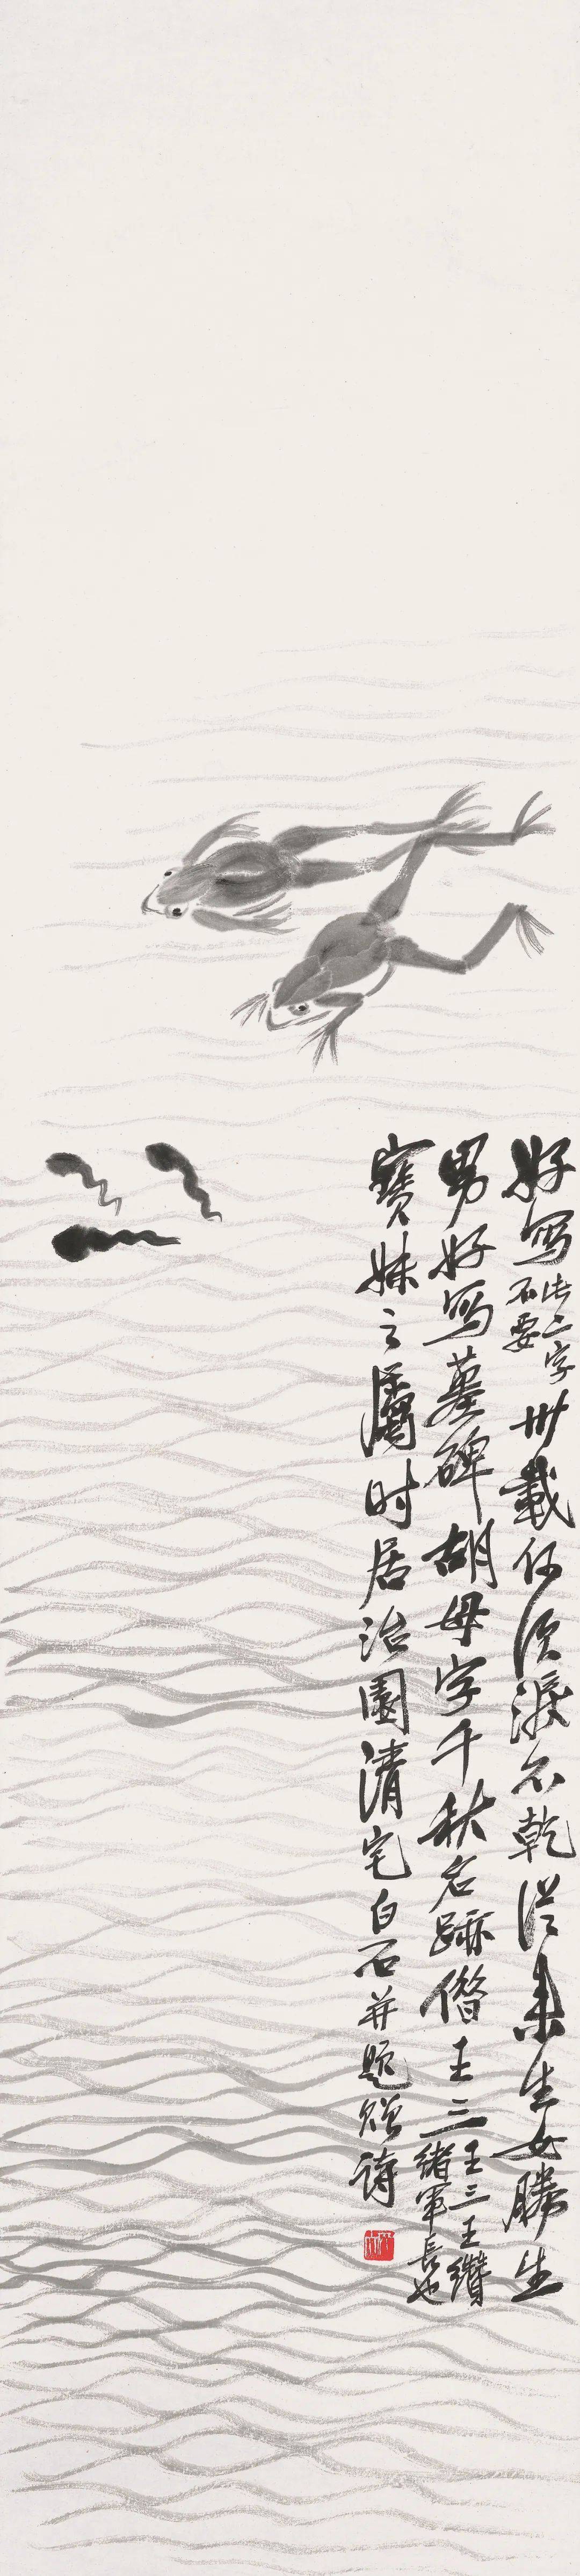 好写此二字不要卅载何须泪不乾从来生女胜生
男好写墓碑胡母字千秋名迹僭王三王三王缵绪军长也
宝妹之属时居治园清宅白石并题赠诗